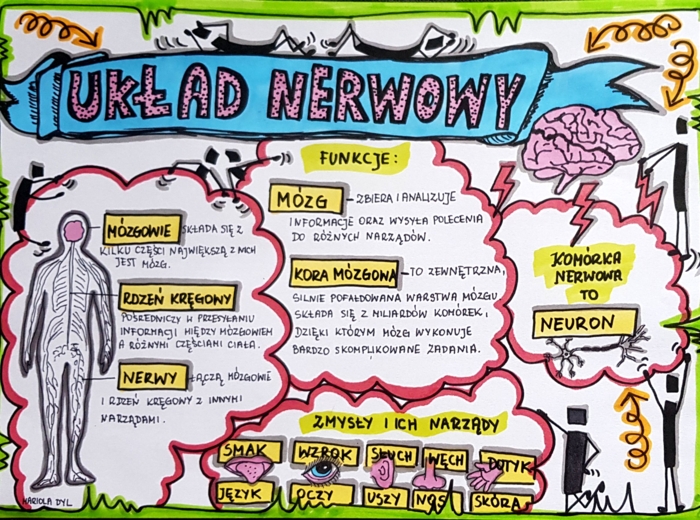 UKŁAD NERWOWY
MÓZGOWIE SKŁADA SIĘ Z
KILKU CZĘŚCI NAJWIĘKSZĄ Z NICH
JEST MÓZG.
RDZEŃ KRĘGOWY
POŚREDNICZY W PRZESYŁANIU
INFORMACJI MIĘDZY MÓZGOWIEM
A RÓŻNYMI CZĘŚCIAMI CIAŁA.
NERWY ŁĄCZĄ MÓZGOWIE
I RDZEŃ KRĘGOWY Z INNYMI
NARZĄDAMI.
FUNKCJE:
MÓZG - ZBIERA I ANALIZUJE
INFORMACJE ORAZ WYSYŁA POLECENIA
DO RÓŻNYCH NARZĄDÓW.
KORA MÓZGOWA - TO ZEWNĘTRZNA,
SILNIE POFAŁDOWANA WARSTWA MÓZGU
SKŁADA SIĘ Z MILIARDÓW KOMÓREK,
DZIĘKI KTÓRYM MÓZG WYKONUJE
BARDZO SKOMPLIKOWANE ZADANIA.
KOMÓRKA
NERWOWA
TO
NEURON
ZMYSŁY I ICH NARZĄDY
SMAK WZROK SŁUCH WĘCH DOTYK
JĘZYK OCZY USZY NOS SKÓRA
MARIOLA DYL